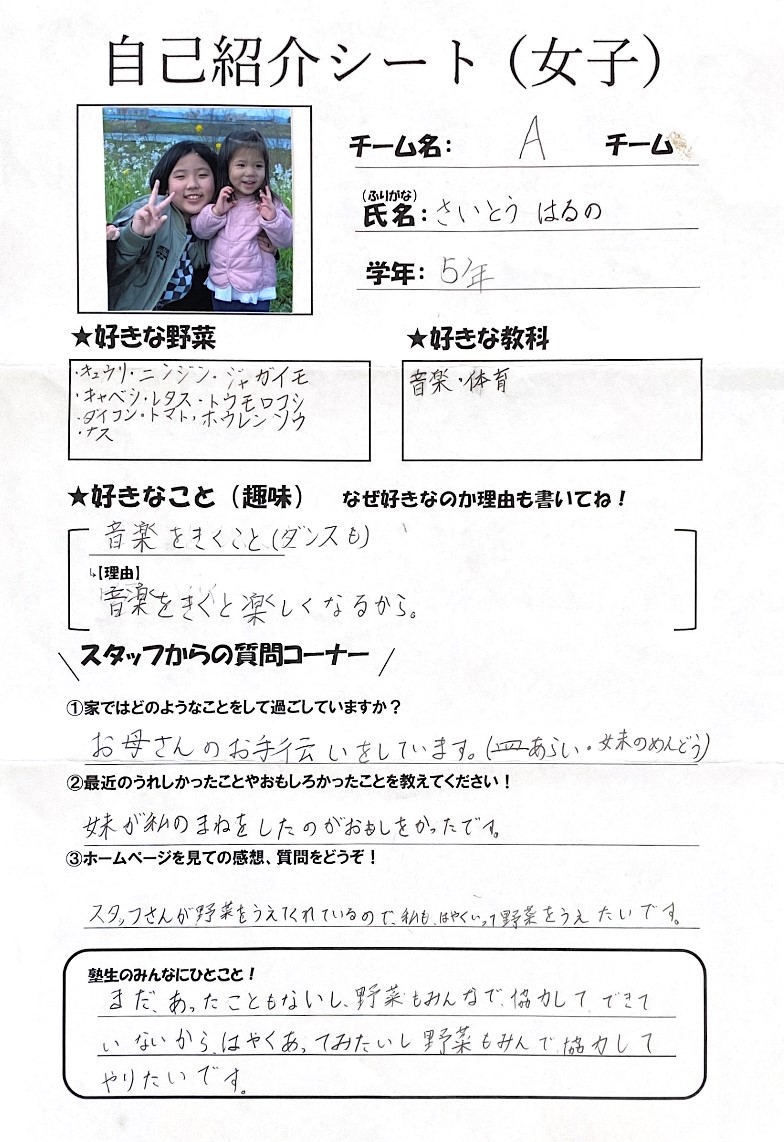 自己紹介シート（女子）
チーム名： A チーム
（ふりがな）
氏名：さいとう はるの
学年：5年
★好きな野菜
・キュウリ・ニンジン・ジャガイモ
・キャベツ・レタス・トウモロコシ
・ダイコン・トマト・ホウレンソウ
・ナス
★好きな教科
音楽・体育
★好きなこと（趣味） なぜ好きなのか理由も書いてね！
音楽をきくこと(ダンスも)
↳【理由】
音楽をきくと楽しくなるから。
＼スタッフからの質問コーナー／
①家ではどのようなことをして過ごしていますか？
お母さんのお手伝いをしています。(皿あらい・妹のめんどう)
②最近のうれしかったことやおもしろかったことを教えてください！
妹が私のまねをしたのがおもしをかったです。
③ホームページを見ての感想、質問をどうぞ！
スタッフさんが野菜をうえてくれているので、私も、はやくいって野菜をうえたいです。
塾生のみんなにひとこと！
まだ、あったこともないし、野菜もみんなで、協力して、できて
いないから、はやくあってみたいし野菜もみんで協力して
やりたいです。